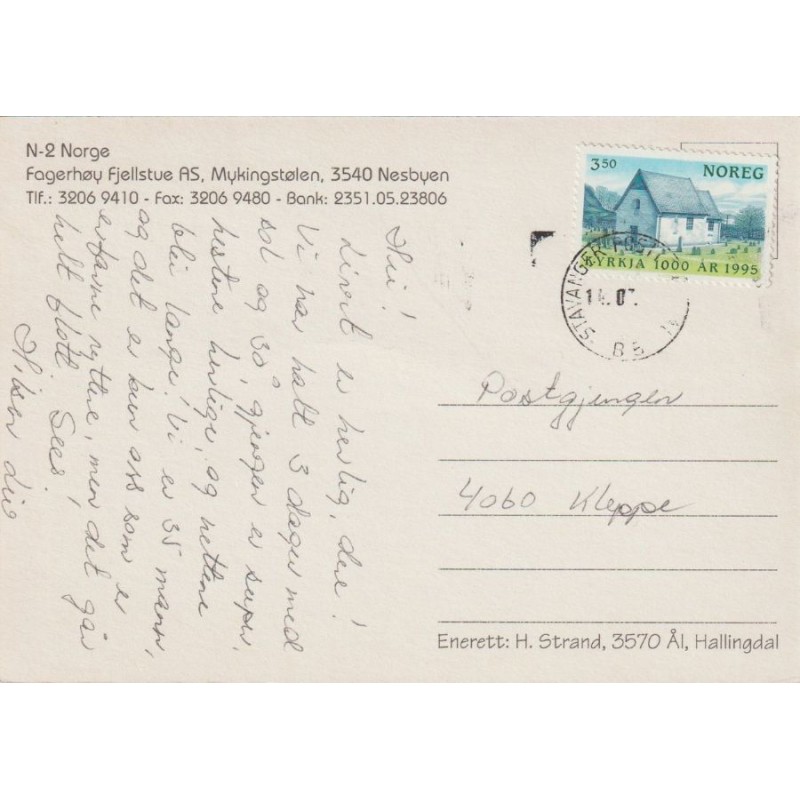 N-2 Norge
Fagerhøy Fjellstue AS, Mykingstølen, 3540 Nesbyen
Tlf.: 3206 9410 - Fax: 3206 9480 - Bank: 2351.05.23806
Hei!
Livet er herlig, dere!
Vi har hatt 3 dager med
sol og 30°, gjengen er super,
hestene herlige, og nettene
blir lange! Vi er 35 mann,
og det er bare oss som er
erfarne ryttere, men det går
helt flott! Sees!
Hilsen
3.50 NOREG
KYRKJA 1000 ÅR 1995
STAVANGER
14.07.
Postgjengen
4060 Kleppe
Enerett: H. Strand, 3570 Ål, Hallingdal